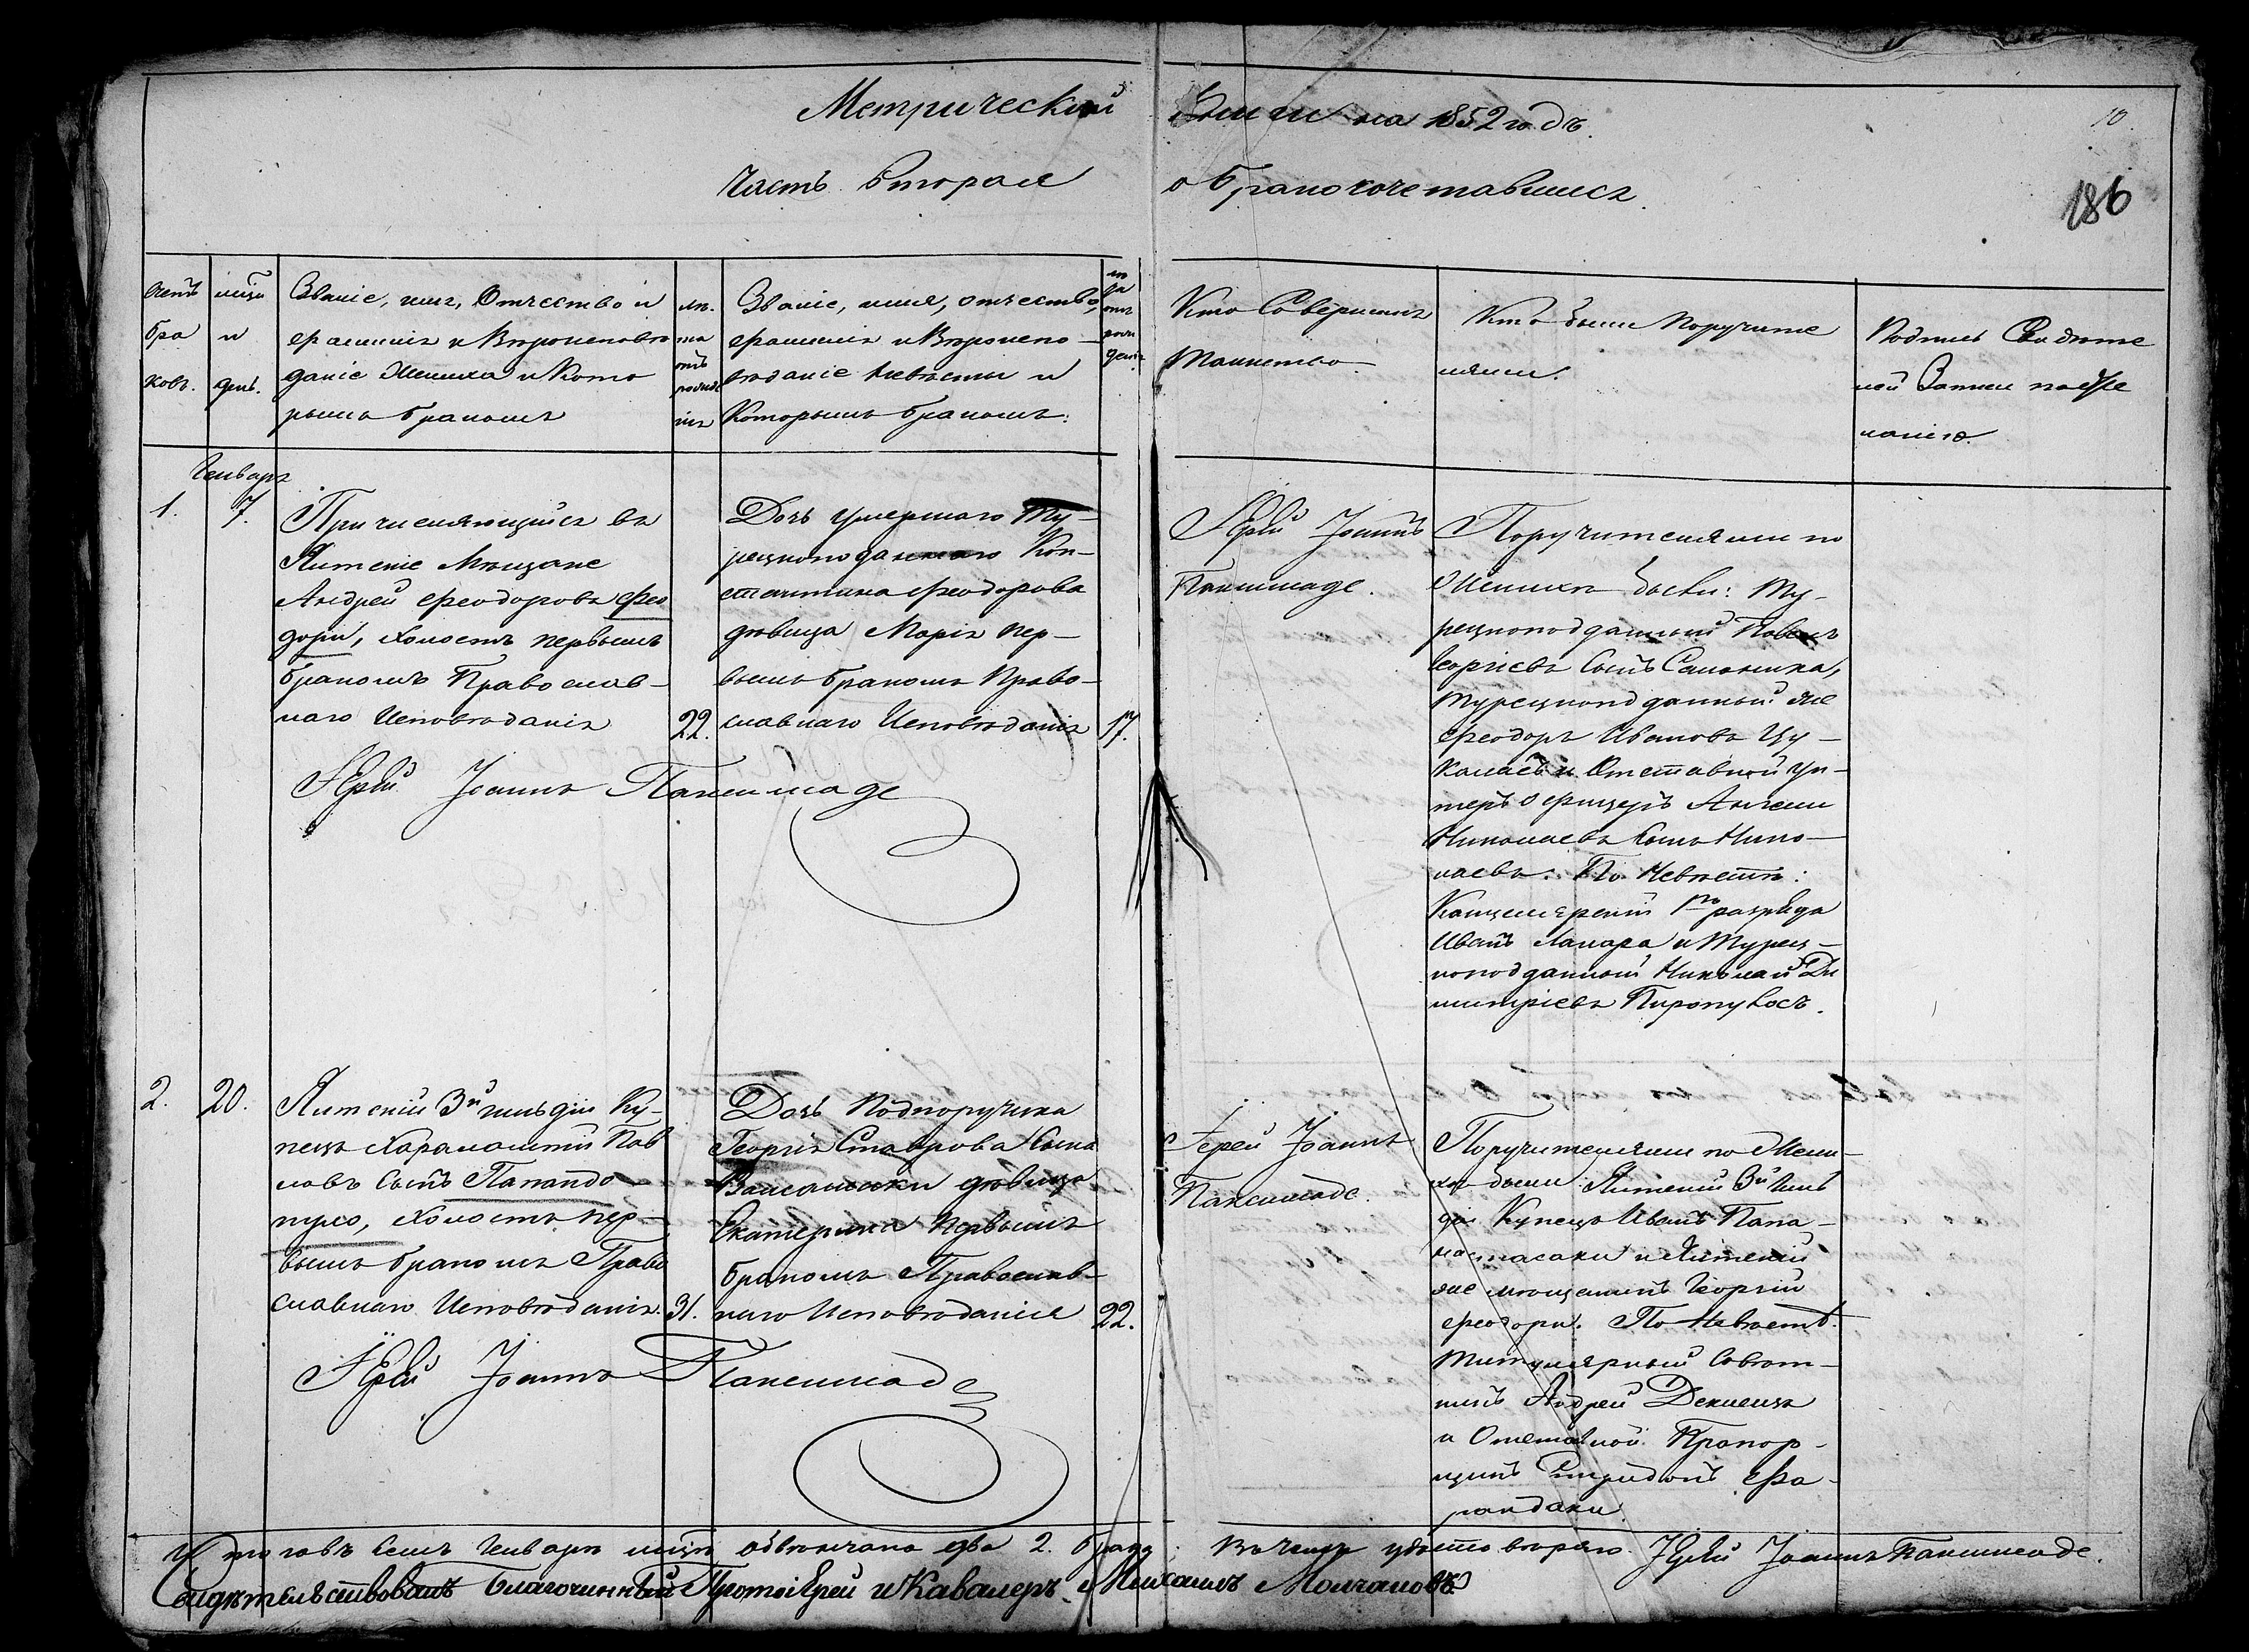 Метрической Книги на 1852 годъ. 10.
Часть вторая о бракосочетавшихся. 186
Счетъ бра ковъ.
мѣсц и день.
Званіе, имя, Отчество и
фамилія и Вѣроисповѣ
даніе Жениха и Кото
рымъ бракомъ
лѣ-
та
отъ
рожде
нія
Званіе, имя, отчество,
фамилія и Вѣроиспо-
вѣданіе Невѣсты и
Которымъ бракомъ:
лѣ
та
отъ
рож
денія
Кто Совершилъ
Таинство.
Кто были Поручите
лями.
Подпись Свидѣте
лей Записи по Же
ланію.
Генварь
1. 7.
Причисляющійся въ
Ялтскіе Мѣщане
Андрей Феодоровъ Фео
дори, холостъ первымъ
бракомъ Православ-
наго Исповѣданія 22.
Дочь умершаго Ту-
рецкоподданнаго Кон-
стантина Феодорова
дѣвица Марія пер-
вымъ бракомъ Право-
славнаго Исповѣданія 17.
Іерей Іоаннъ
Паксимаде.
Поручителями по
Женихѣ были: Ту-
рецкоподданный Павелъ
Георгіевъ Сынъ Салоника,
Турецкоподданный же
Феодоръ Ивановъ Цу-
каласъ и Отставной Ун-
теръ офицеръ Ангели
Николаевъ Сынъ Нико-
лаевъ. По Невѣстѣ:
Канцелярскій 1го разряда
Иванъ Ламара и Турец-
коподданный Николай Ди
митріевъ Пиропулосъ.
Іерей Іоаннъ Паксимаде
2. 20.
Ялтскій 3й гильдіи Ку-
пецъ Харалампій Пав
ловъ Сынъ Папандо-
пуло, холостъ пер-
вымъ бракомъ Право
славнаго Исповѣданія. 31.
Дочь Подпоручика
Георгія Ставрова Сына
дѣвица
Екатерина Первымъ
бракомъ Православ-
наго Исповѣданія 22.
Іерей Іоаннъ
Паксимаде.
Поручителями по Жени-
хѣ были: Ялтскій 3й Гиль
діи Купецъ Иванъ Папа-
настасаки и Ялтскій
же мѣщанинъ Георгій
Феодори. По Невѣстѣ:
Титулярный Совѣт-
никъ Андрей
и Отставной Прапор-
щикъ Спиридонъ Фа-
рандаки.
Іерей Іоаннъ Паксимаде
Итого въ семъ Генварѣ мѣсцѣ обвѣнчано два 2. брака. Въ чемъ удостовѣряю. Іерей Іоаннъ Паксимаде.
Свидѣтельствовалъ Благочинный Протоіерей и Кавалеръ Михаилъ Молчановъ